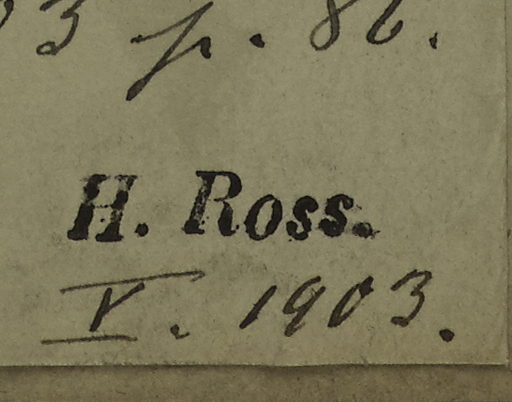 3 p. 86.
H. Ross.
V. 1903.